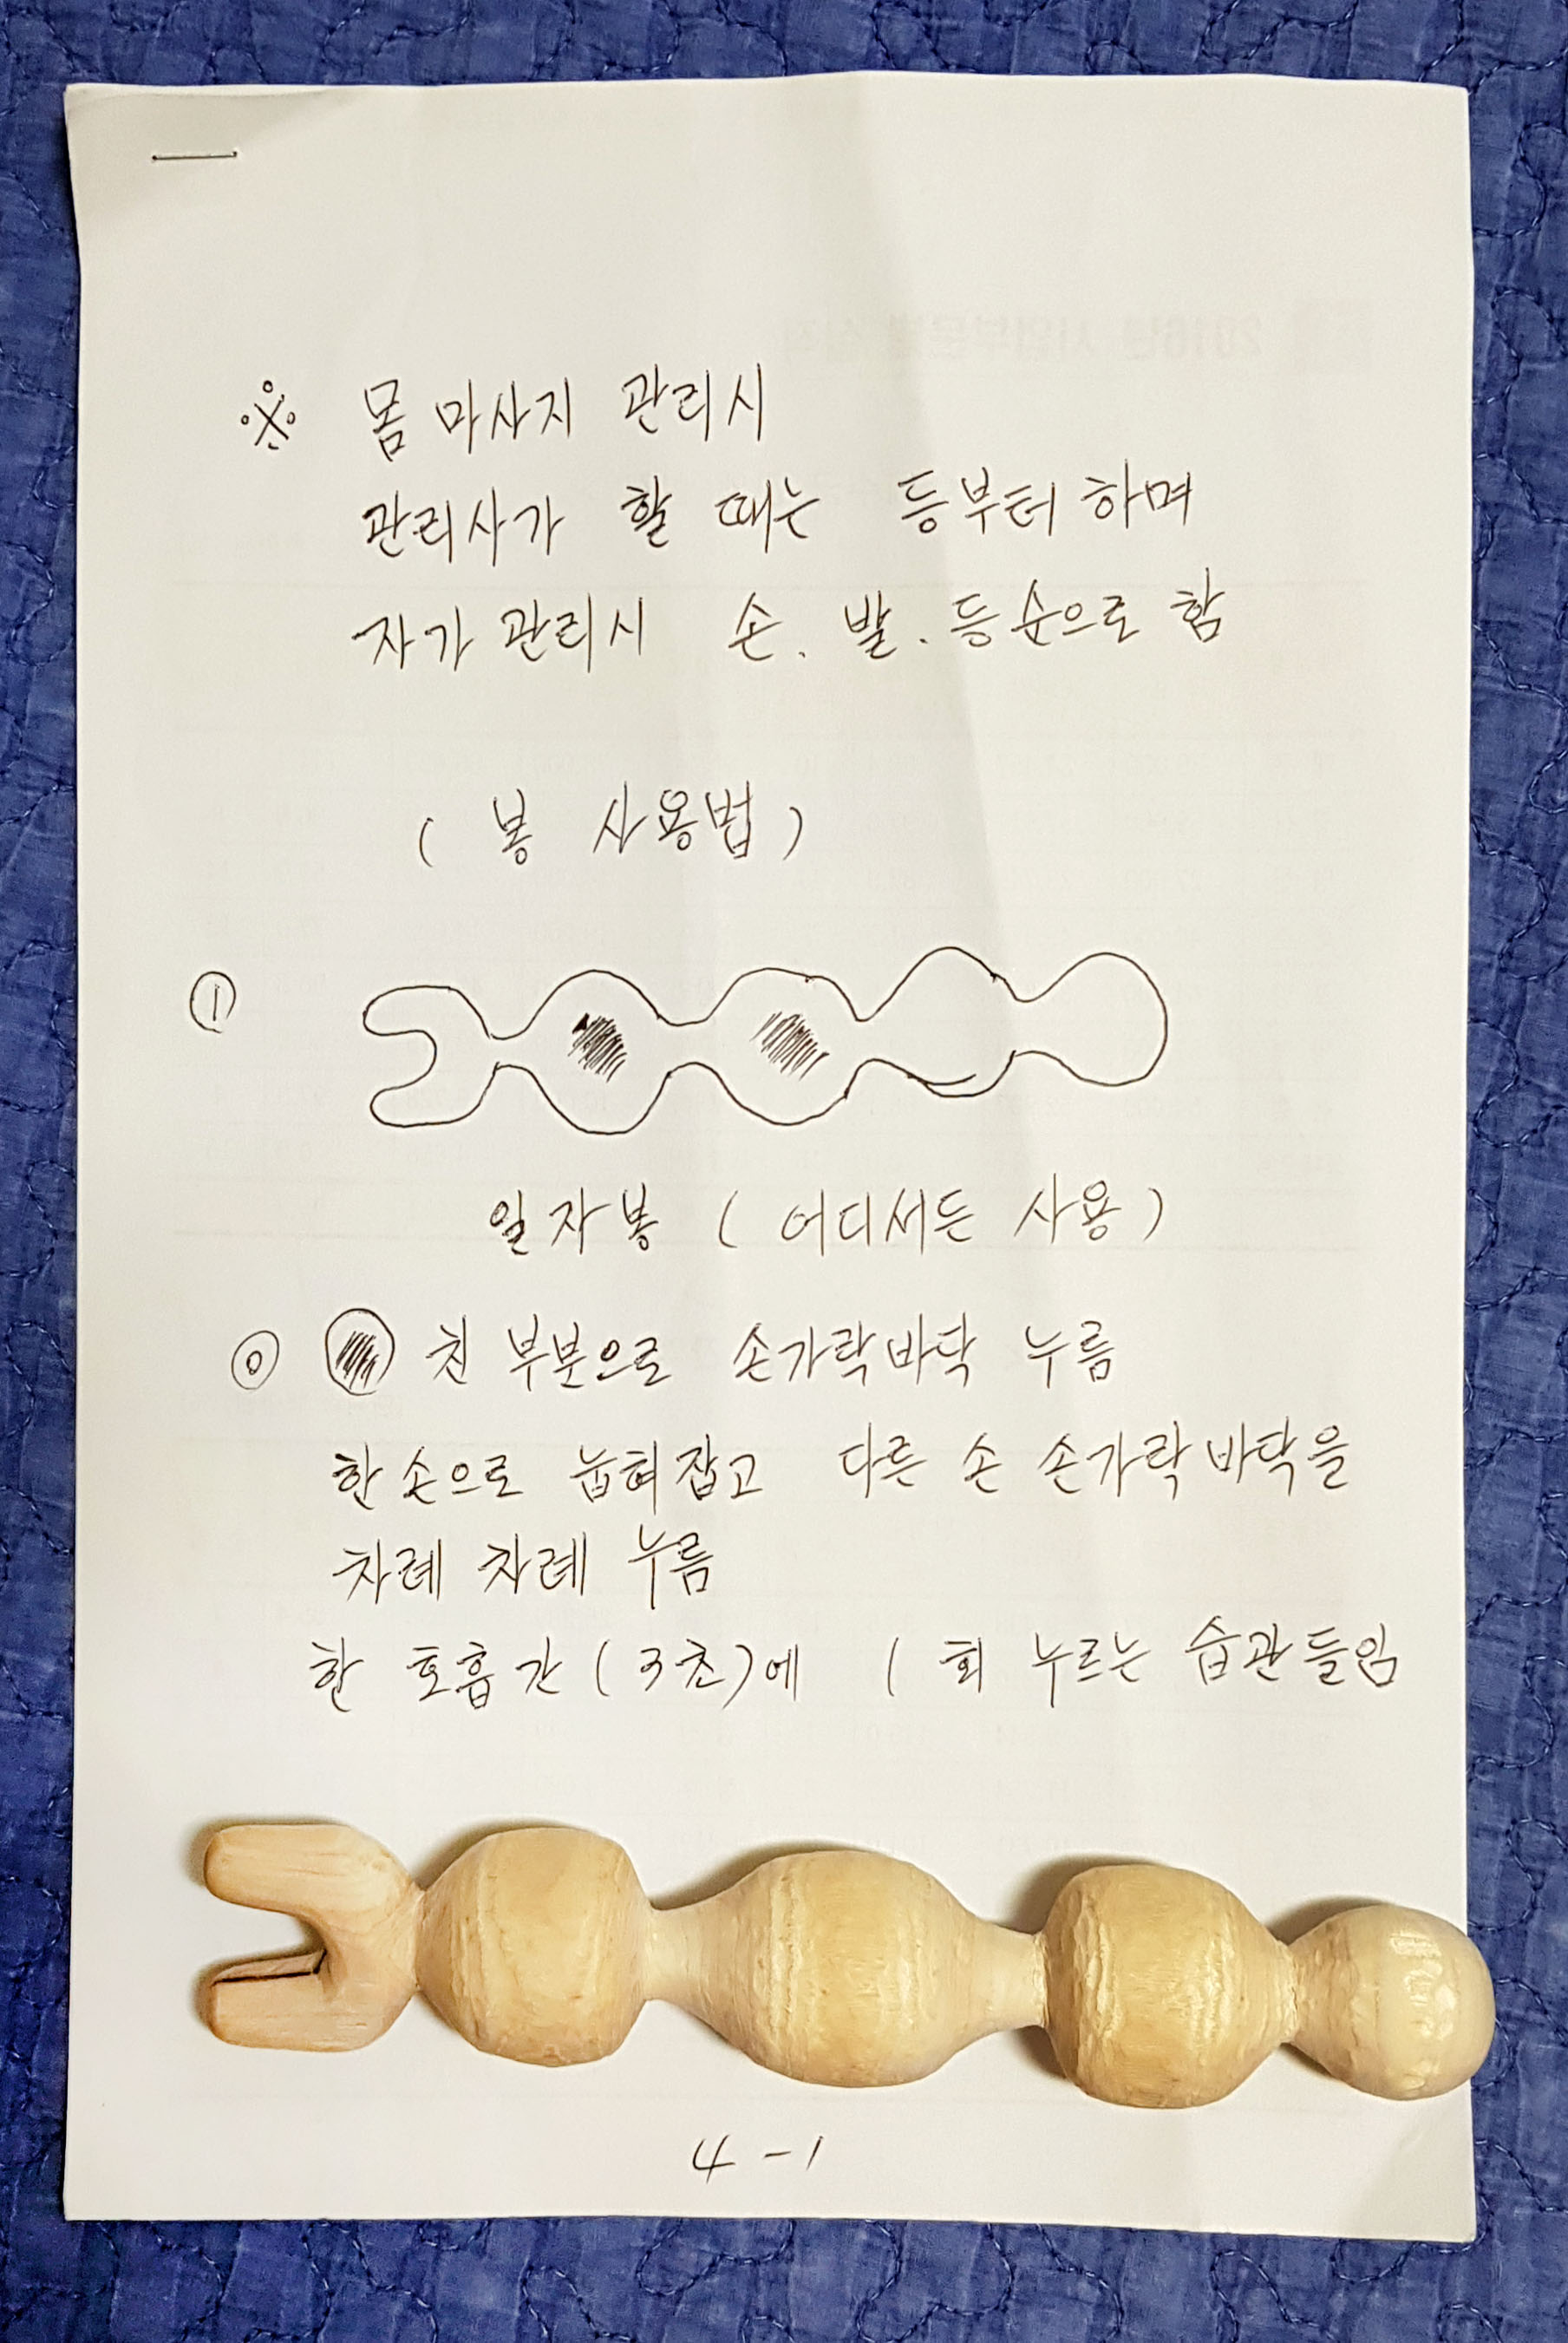 ※ 몸 마사지 관리시
관리사가 할 때는 등부터 하며
자가 관리시 손. 발. 등순으로 함
( 봉 사용법 )
①
일자봉 ( 어디서든 사용 )
◎ 친 부분으로 손가락바닥 누름
한손으로 눕혀잡고 다른 손 손가락바닥을
차례 차례 누름
한 호흡간(3초)에 1회 누르는 습관들임
4-1